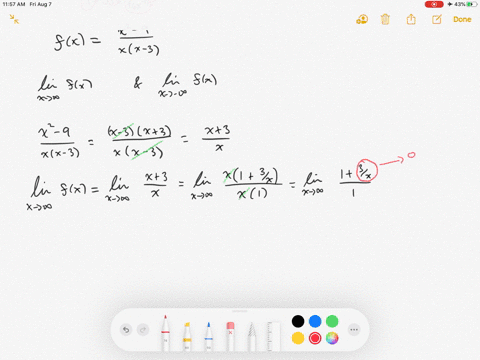 11:57 AM Fri Aug 7
43%
Done
f(x) = / x(x-3)
lim x→∞ f(x) & lim x→-∞ f(x)
x²-9 / x(x-3) = (x-3)(x+3) / x(x-3) = x+3 / x
lim x→∞ f(x) = lim x→∞ x+3 / x = lim x→∞ x(1 + 3/x) / x(1) = lim x→∞ 1 + 3/x / 1 → 0